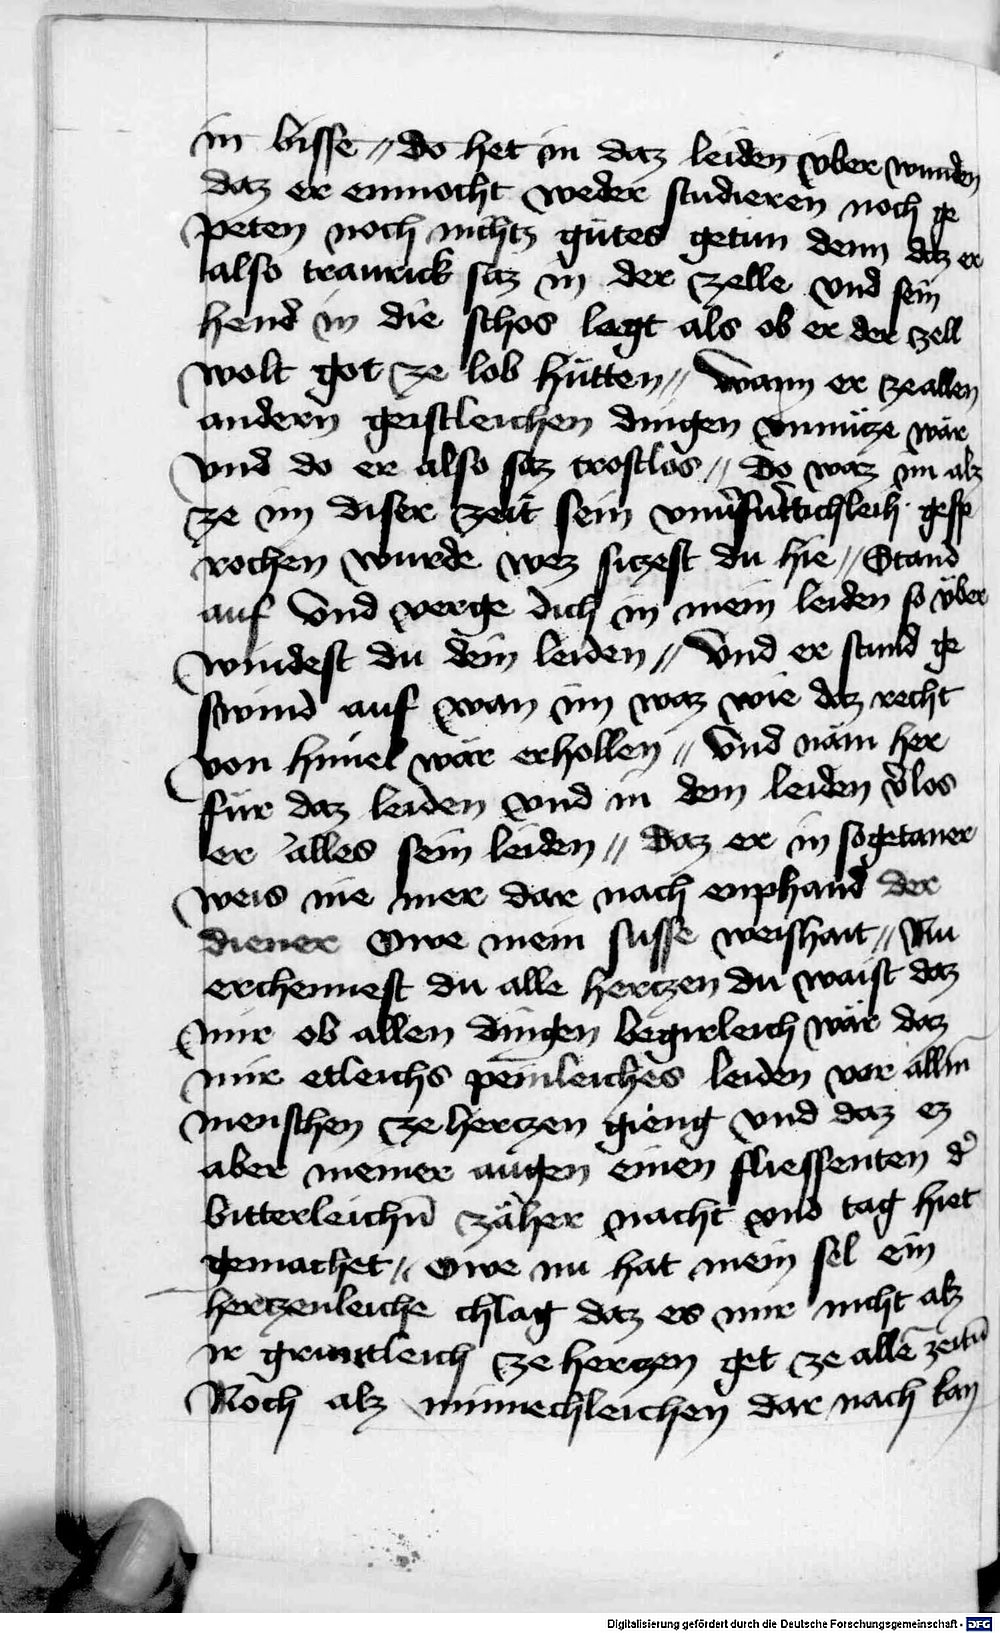 in bisse // do het in daz leiden vber wunden
daz er enmocht weder studieren noch ge
peten noch nichtz gůtes getun denn daz er
also traurick saz in der zelle vnd sein
hend in die schos legt als ob er der zell
wolt got ze lob hütten // wann er ze allen
andern geistleichen dingen vnnütze wär
vnd do er also saz trostlos // do waz im alz
ze im diser zeit sein gesp
rochen wurde wez sitzest du hie // Stand
auf vnd verge dich in mein leiden so über
windest du dein leiden // vnd er stund ge
swind auf wan im waz wie daz recht
von himel wär erhollen // vnd näm her
für daz leiden vnd in dem leiden v̾los
er alles sein leiden // daz er in sogetaner
weis nie mer dar nach enphand der
diener Owe mein susse weishait // Nu
erchennest du alle hertzen du waist daz
mir ob allen dingen begirleich wär daz
mir etleichs peinleiches leiden vor alln̄
menschen ze hertzen gieng vnd daz ez
aber meiner augen einen fliessenten d̾
bitterleichn̄ zäher nacht vnd tag hiet
gemachet // Owe nu hat mein sel ein
hertzenleiche chlag daz es mir nicht alz
ir gruntleich ze hertzen get ze allē zeitn̄
Noch alz minnechleichen dar nach kan
Digitalisierung gefördert durch die Deutsche Forschungsgemeinschaft - DFG